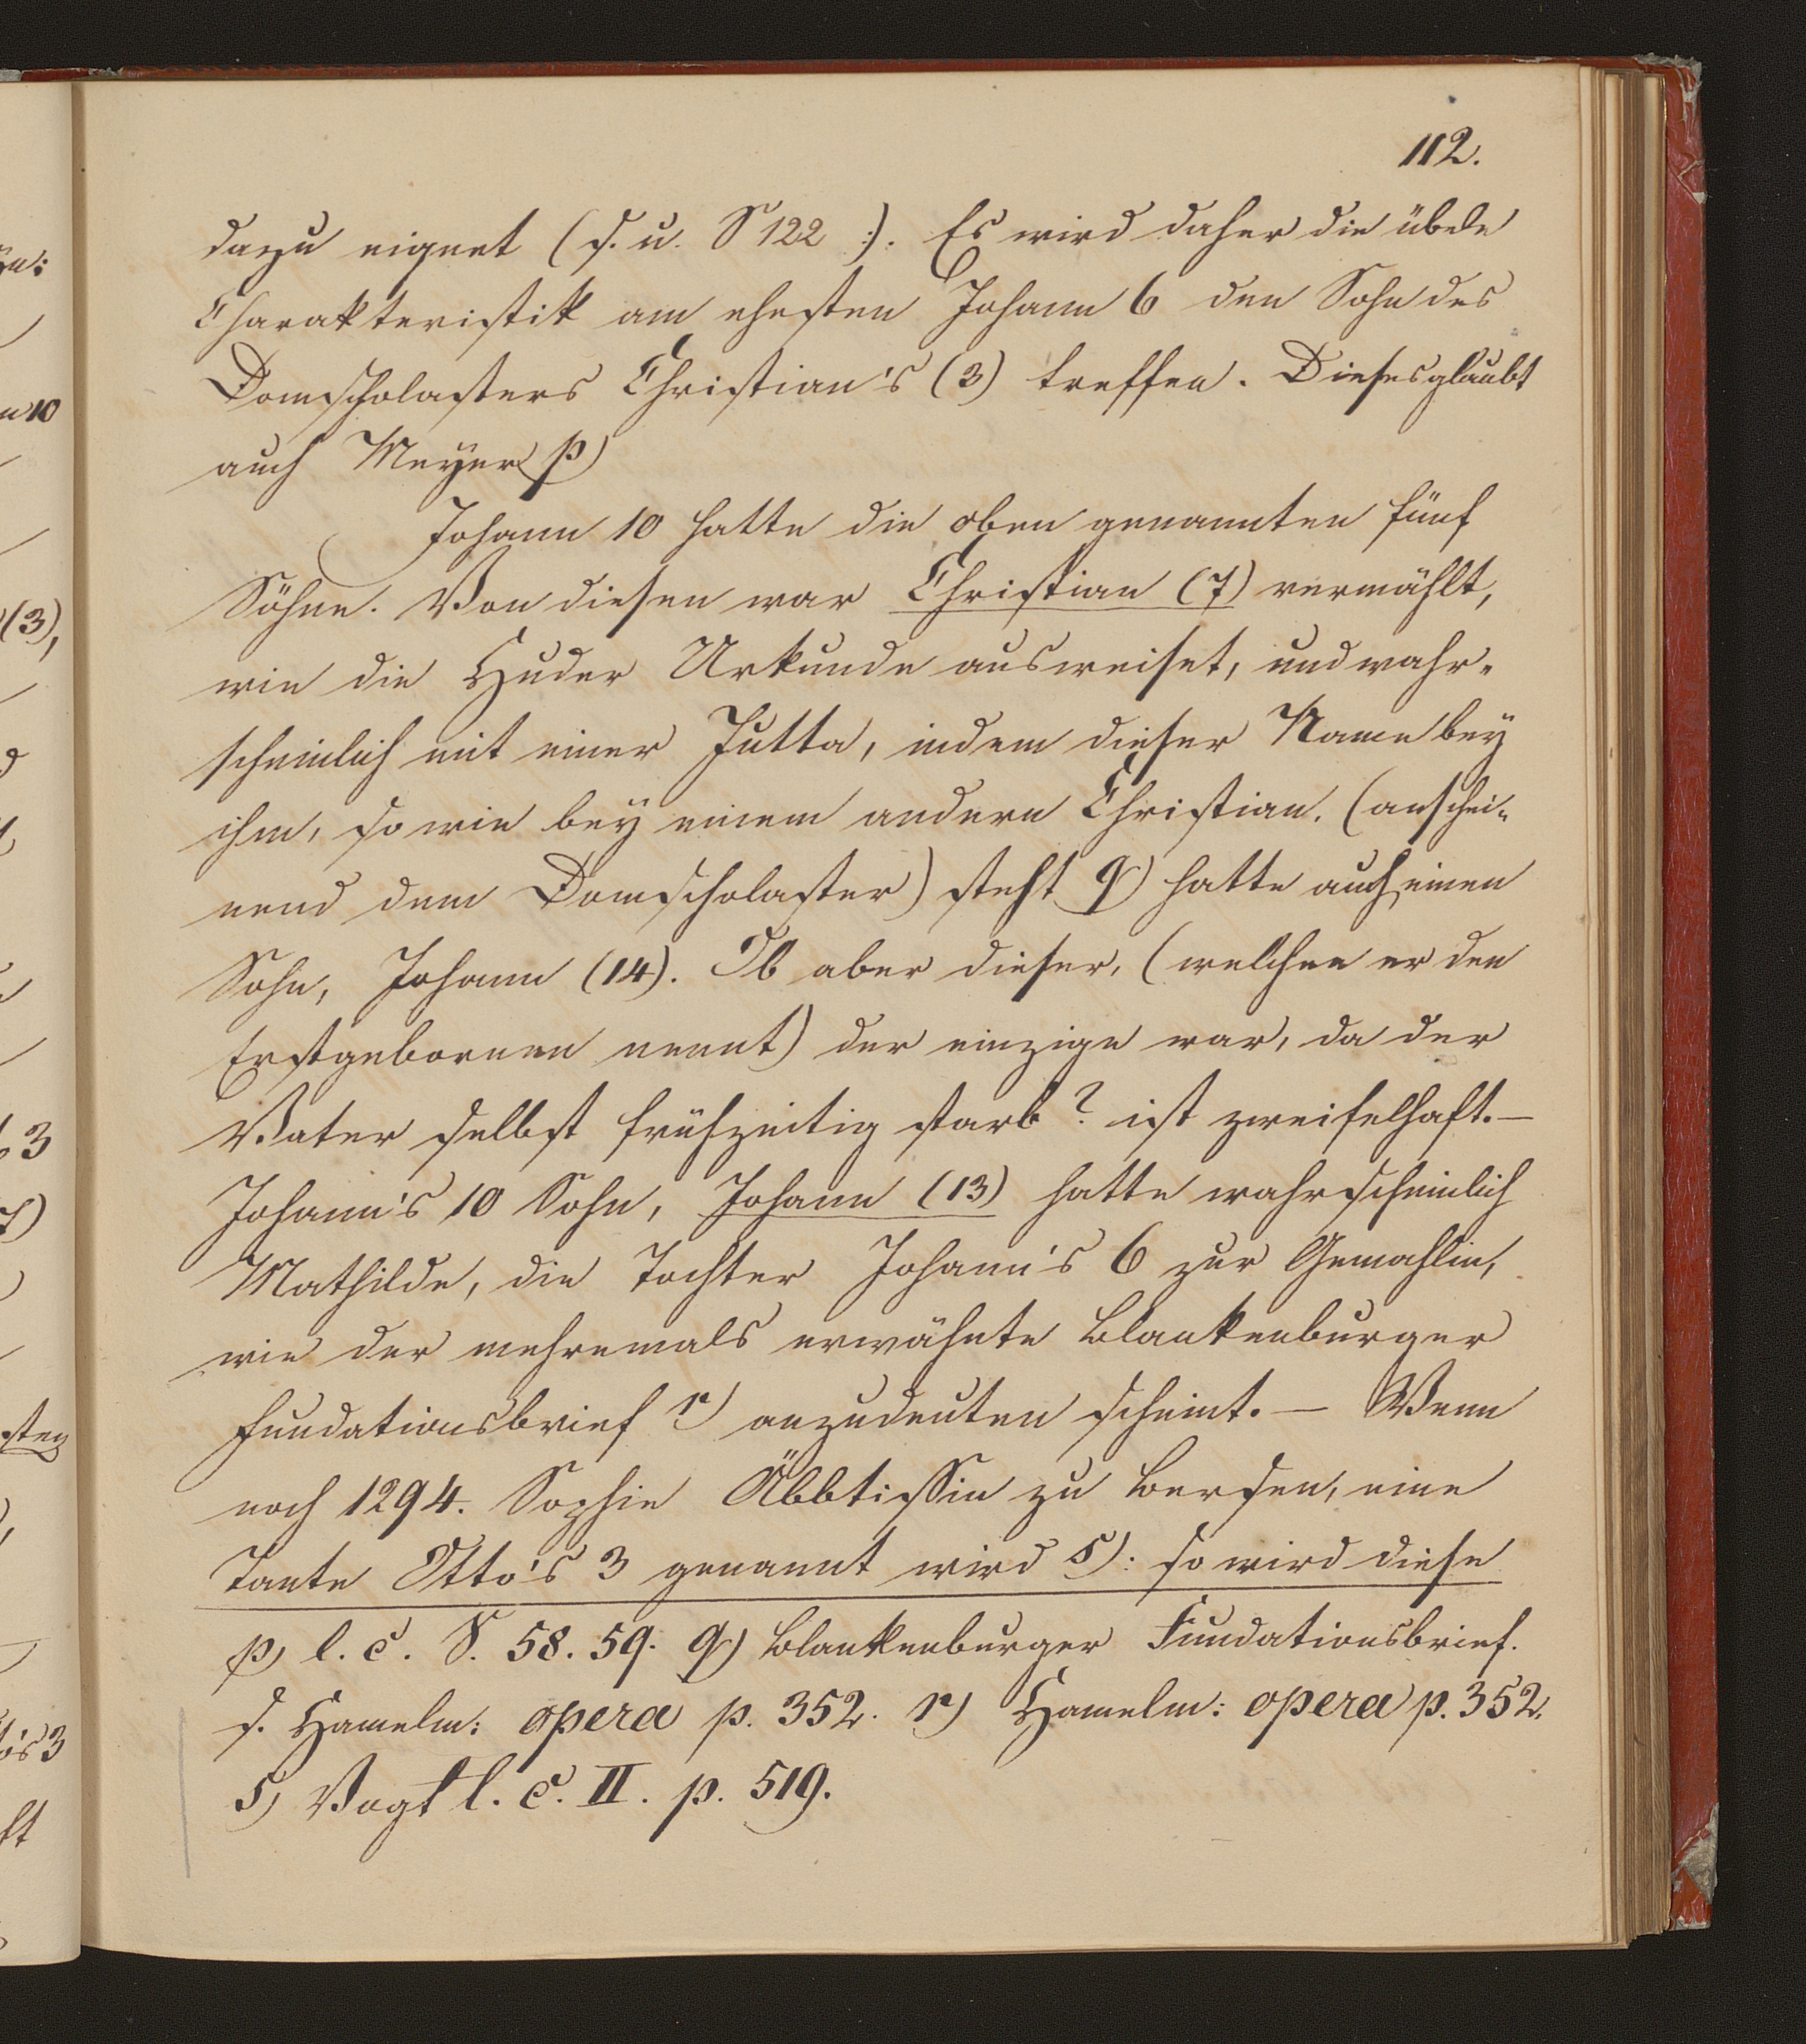 112.
dazu eignet (s. u. S 122 :). Es wird daher die übele
Charakteristik am ehesten Johann 6 den Sohn des
Domscholasters Christian's (3) treffen. Dieses glaubt
auch Meyer p)
Johann 10 hatte die oben genannten fünf
Söhne. Von diesen war Christian (7) vermählt,
wie die Huder Urkunde ausweiset, und wahr-
scheinlich mit einer Jutta, indem dieser Name bey
ihm, so wie bey einem andern Christian, (anschei-
nend dem Domscholaster) steht q) hatte auch einen
Sohn, Johann (14). Ob aber dieser, (welchen er den
Erstgebornen nennt) der einzige war, da der
Vater selbst frühzeitig starb? ist zweifelhaft.—
Johann's 10 Sohn, Johann (13) hatte wahrscheinlich
Mathilde, die Tochter Johann's 6 zur Gemahlin,
wie der mehremals erwähnte Blankenburger
Fundationsbrief r) anzudeuten scheint. — Wenn
noch 1294. Sophie Äbbtissin zu Bersen, eine
Tante Otto's 3 genannt wird s): so wird diese
p) l. c. S. 58. 59. q) Blankenburger Fundationsbrief.
s. Hamelm: opera p. 352. r) Hamelm: opera p. 352.
s) Vogt l. c. II. p. 519.